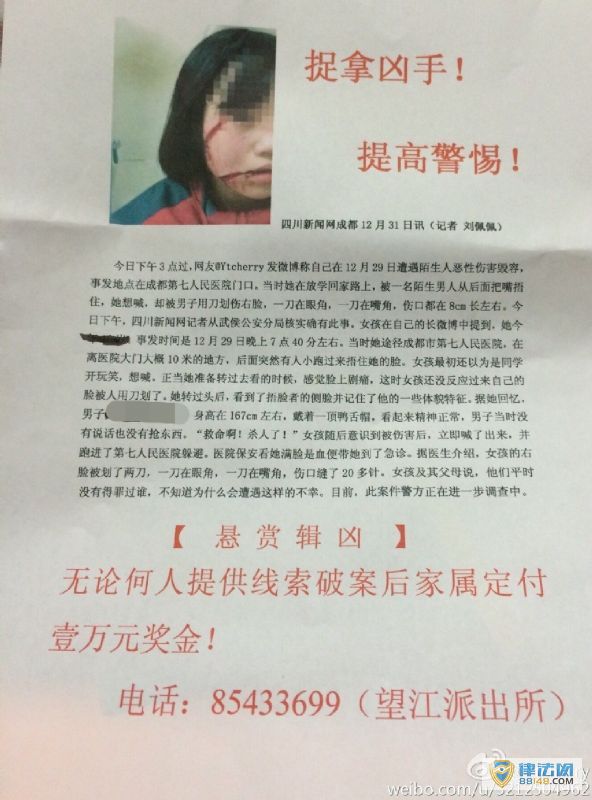 捉拿凶手！
提高警惕！
四川新闻网成都12月31日讯（记者 刘佩佩）
今日下午3点过，网友@Ytcherry发微博称自己在12月29日遭遇陌生人恶性伤害毁容，
事发地点在成都第七人民医院门口。当时她在放学回家路上，被一名陌生男人从后面把嘴捂
住，她想喊，却被男子用刀划伤右脸，一刀在眼角，一刀在嘴角，伤口都在8cm长左右。今
日下午，四川新闻网记者从武侯公安分局核实确有此事。女孩在自己的长微博中提到，她今
事发时间是12月29日晚上7点40分左右。当时她途径成都市第七人民医院，在
离医院大门大概10米的地方，后面突然有人小跑过来捂住她的脸。女孩最初还以为是同学
开玩笑，想喊，正当她准备转过去看的时候，感觉脸上剧痛，这时女孩还没反应过来自己的
脸被人用刀划了。她转过头后，看到了捂脸者的侧脸并记住了他的一些体貌特征。据她回忆，
男子 身高在167cm左右，戴着一顶鸭舌帽，看起来精神正常，男子当时没
有说话也没有抢东西。“救命啊！杀人了！”女孩随后意识到被伤害后，立即喊了出来，并
跑进了第七人民医院躲避。医院保安看她满脸是血便带她到了急诊。据医生介绍，女孩的右
脸被划了两刀，一刀在眼角，一刀在嘴角，伤口缝了20多针。女孩及其父母说，他们平时
没有得罪过谁，不知道为什么会遭遇这样的不幸。目前，此案件警方正在进一步调查中。
【悬赏辑凶】
无论何人提供线索破案后家属定付
壹万元奖金！
电话：85433699（望江派出所）
律法网
88148.COM
weibo.com/u/3212304962